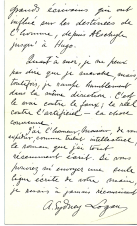 grands écrivains qui ont
influé sur les destinées de
l'homme, depuis Aeschyle
jusqu'à Hugo.
Quant à moi, je ne peux
pas dire que je marche, mais,
je rampe humblement
dans la même direction. C'est
le vrai contre le faux; le réel
contre l'artificiel — la chose
convenue.
J'ai l'honneur, Monsieur, de vous
expédier, comme tribut intellectuel,
le roman que j'ai tout
récemment écrit. Si vous
pouviez m'envoyer une seule
ligne écrite de votre main,
je aurais à jamais reconnaissant
A. Sydney Logan